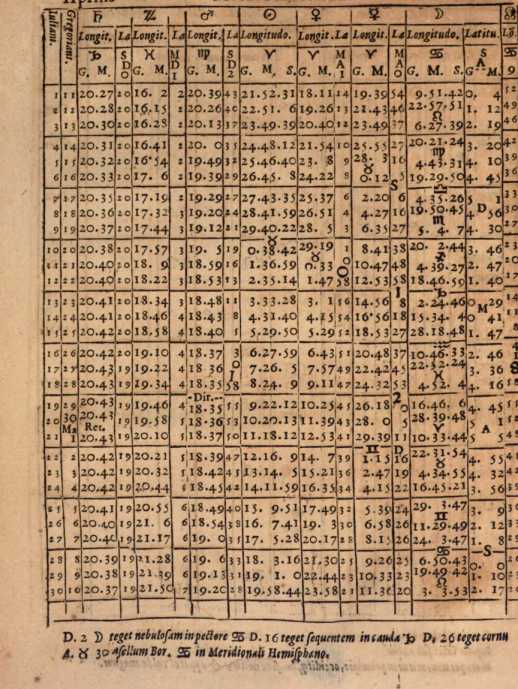 Iuliani. Gregoriani. ♄ ♃ ♂ ☉ ♀ ☿ ☽
Longit. La Longit. La Longit. La Longitudo. Longit. La Longit. La Longitudo. Latitu.
♑ S D ♓ M D ♍ S D ♈ ♈ M A ♈ M A ♋ S A
G. M. 0 G. M. 1 G. M. 2 G. M. S. G. M. 1 G. M. 0 G. M. G. M.
1 11 20.27 20 16. 2 2 20.39 43 21.52.31 18.11 14 19.39 54 9.51.42 0, 4
2 12 20.28 20 16.15 2 20.26 40 22.51. 6 19.26 13 21.43 46 22.57.51 1. 12
♌
3 13 20.30 20 16.28 2 20.13 37 23.49.39 20.40 12 23.49 37 6.27.39 2. 19
4 14 20.31 20 16.41 2 20. 0 35 24.48.12 21.54 10 25.55 27 20.21.24 3. 20
♍
5 15 20.32 20 16.54 2 19.49 32 25.46.40 23. 8 9 28. 3 16 4.43.31 4. 10
♉
6 16 20.33 20 17. 6 2 19.39 29 26.45. 8 24.22 8 0.12 5 19.29.50 4. 45
S ♎
7 17 20.35 20 17.19 2 19.29 27 27.43.35 25.37 6 2.20 6 4.35.26 5 1
8 18 20.36 20 17.32 3 19.20 24 28.41.59 26.51 4 4.27 16 19.50.45 D 4 56
♏
9 19 20.37 20 17.44 3 19.12 21 29.40.22 28. 5 3 6.35 27 5. 4. 7 4. 30
♉
10 20 20.38 20 17.57 3 19. 5 19 0.38.42 29.19 1 8.41 38 20. 2.44 3. 46
♉ ♐
11 21 20.40 20 18. 9 3 18.59 16 1.36.59 0.33 0 10.47 48 4.39.27 2. 47
12 22 20.40 20 18.22 3 18.53 13 2.35.14 1.47 58 12.53 58 18.46.59 1. 40
♑
13 23 20.41 20 18.34 3 18.48 11 3.33.28 3. 1 56 14.56 8 2.24.46 0 29
14 24 20.41 20 18.46 3 18.43 8 4.31.40 4.15 54 16.56 18 15.34. 4 0 41
15 25 20.42 20 18.58 4 18.40 5 5.29.50 5.29 52 18.53 27 28.18.48 1. 47
♒
16 26 20.42 20 19.10 4 18.37 3 6.27.59 6.43 51 20.48 37 10.46.33 2. 46
17 27 20.43 20 19.22 4 18.36 0 7.26. 5 7.57 49 22.42 45 22.52.24 3. 36
♓
18 28 20.43 19 19.34 4 18.35 58 8.24. 9 9.11 47 24.32 53 4.52. 4 4. 16
Dir.
19 29 20.43 19 19.46 4 18.35 55 9.22.12 10.25 45 26.18 2 16.46. 6 4. 45
20 30 20.43 19 19.58 5 18.36 53 10.20.13 11.39 43 28. 0 5 28.39.48 5
Ma Ret. ♈ A
21 1 20.43 19 20.10 5 18.37 50 11.18.12 12.53 41 29.39 11 10.33.44 5
♊ D
22 2 20.42 19 20.21 5 18.39 47 12.16. 9 14. 7 39 1.15 16 22.31.54 4. 55
♉
23 3 20.42 19 20.32 5 18.42 45 13.14. 5 15.21 36 2.47 19 4.34.55 4. 32
24 4 20.42 19 20.44 5 18.45 42 14.11.59 16.35 34 4.15 22 16.45.21 3. 56
25 5 20.41 19 20.55 6 18.49 40 15. 9.51 17.49 32 5.39 24 29. 3.47 3. 9
♊
26 6 20.40 19 21. 6 6 18.54 38 16. 7.41 19. 3 30 6.58 26 11.29.49 2. 12
27 7 20.40 19 21.17 6 19. 0 35 17. 5.28 20.17 28 8.15 26 24. 3.47 1. 8
♋ S
28 8 20.39 19 21.28 6 19. 6 33 18. 3.16 21.30 25 9.26 25 6.50.43 0. 0
29 9 20.38 19 21.39 6 19.13 31 19. 1. 0 22.44 23 10.33 23 19.49.42 1. 10
♌
30 10 20.37 19 21.50 7 19.20 28 19.58.44 23.58 21 11.36 20 3. 3.53 2. 17
D. 2 ☽ teget nebulosam in pectore ♋ D. 16 teget sequentem in cauda ♑ D. 26 teget cornu
A. ♉ 30 asellum Bor. ♋ in Meridionali Hemisphærio.